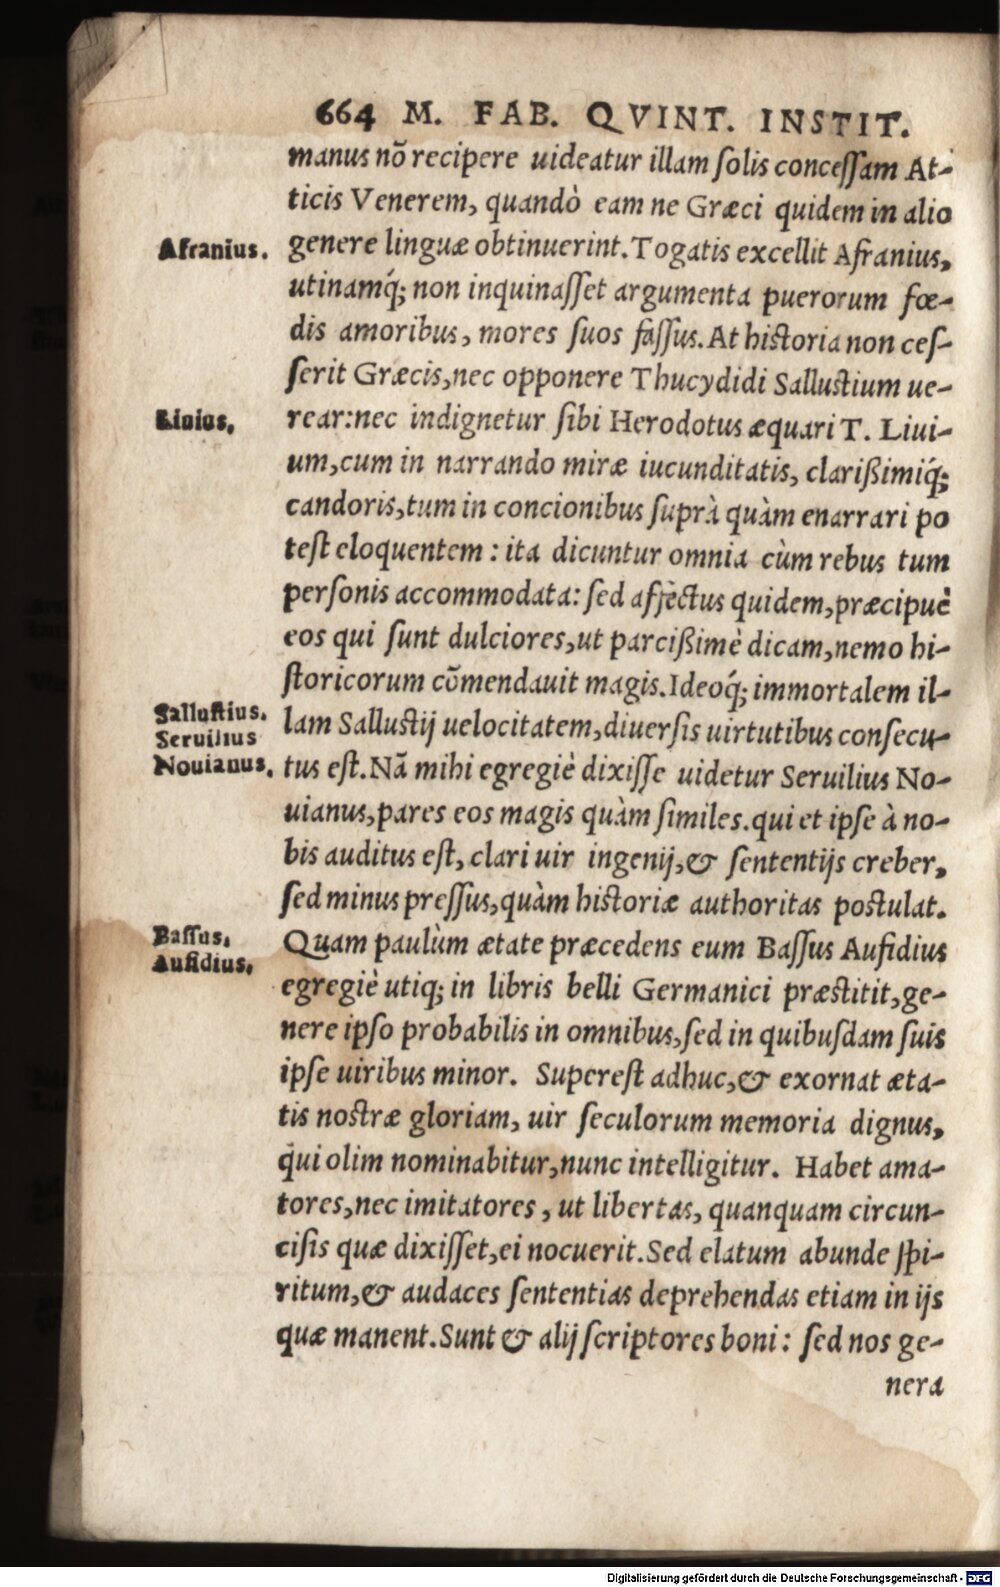 664 M. FAB. QVINT. INSTIT.
manus nõ recipere uideatur illam ſolis conceſſam At-
ticis Venerem, quandò eam ne Græci quidem in alio
Afranius.
genere linguæ obtinuerint. Togatis excellit Afranius,
utinamq́; non inquinaſſet argumenta puerorum fœ-
dis amoribus, mores ſuos faſſus. At hiſtoria non ceſ-
ſerit Græcis, nec opponere Thucydidi Salluſtium ue-
Liuius,
rear: nec indignetur ſibi Herodotus æquari T. Liui-
um, cum in narrando miræ iucunditatis, clarißimiq́;
candoris, tum in concionibus ſuprà quàm enarrari po
teſt eloquentem: ita dicuntur omnia cùm rebus tum
perſonis accommodata: ſed affectus quidem, præcipuè
eos qui ſunt dulciores, ut parcißimè dicam, nemo hi-
ſtoricorum cõmendauit magis. Ideoq́; immortalem il-
Salluſtius.
lam Salluſtij uelocitatem, diuerſis uirtutibus conſecu-
Seruilius
Nouianus.
tus eſt. Nã mihi egregiè dixiſſe uidetur Seruilius No-
uianus, pares eos magis quàm ſimiles. qui et ipſe à no-
bis auditus eſt, clari uir ingenij, & ſententijs creber,
ſed minus preſſus, quàm hiſtoriæ authoritas poſtulat.
Baſſus.
Quam paulùm ætate præcedens eum Baſſus Aufidius
Aufidius,
egregiè utiq; in libris belli Germanici præſtitit, ge-
nere ipſo probabilis in omnibus, ſed in quibuſdam ſuis
ipſe uiribus minor. Supereſt adhuc, & exornat æta-
tis noſtræ gloriam, uir ſeculorum memoria dignus,
qui olim nominabitur, nunc intelligitur. Habet ama-
tores, nec imitatores, ut libertas, quanquam circun-
ciſis quæ dixiſſet, ei nocuerit. Sed elatum abunde ſpi-
ritum, & audaces ſententias deprehendas etiam in ijs
quæ manent. Sunt & alij ſcriptores boni: ſed nos ge-
nera
Digitalisierung gefördert durch die Deutsche Forschungsgemeinschaft - DFG